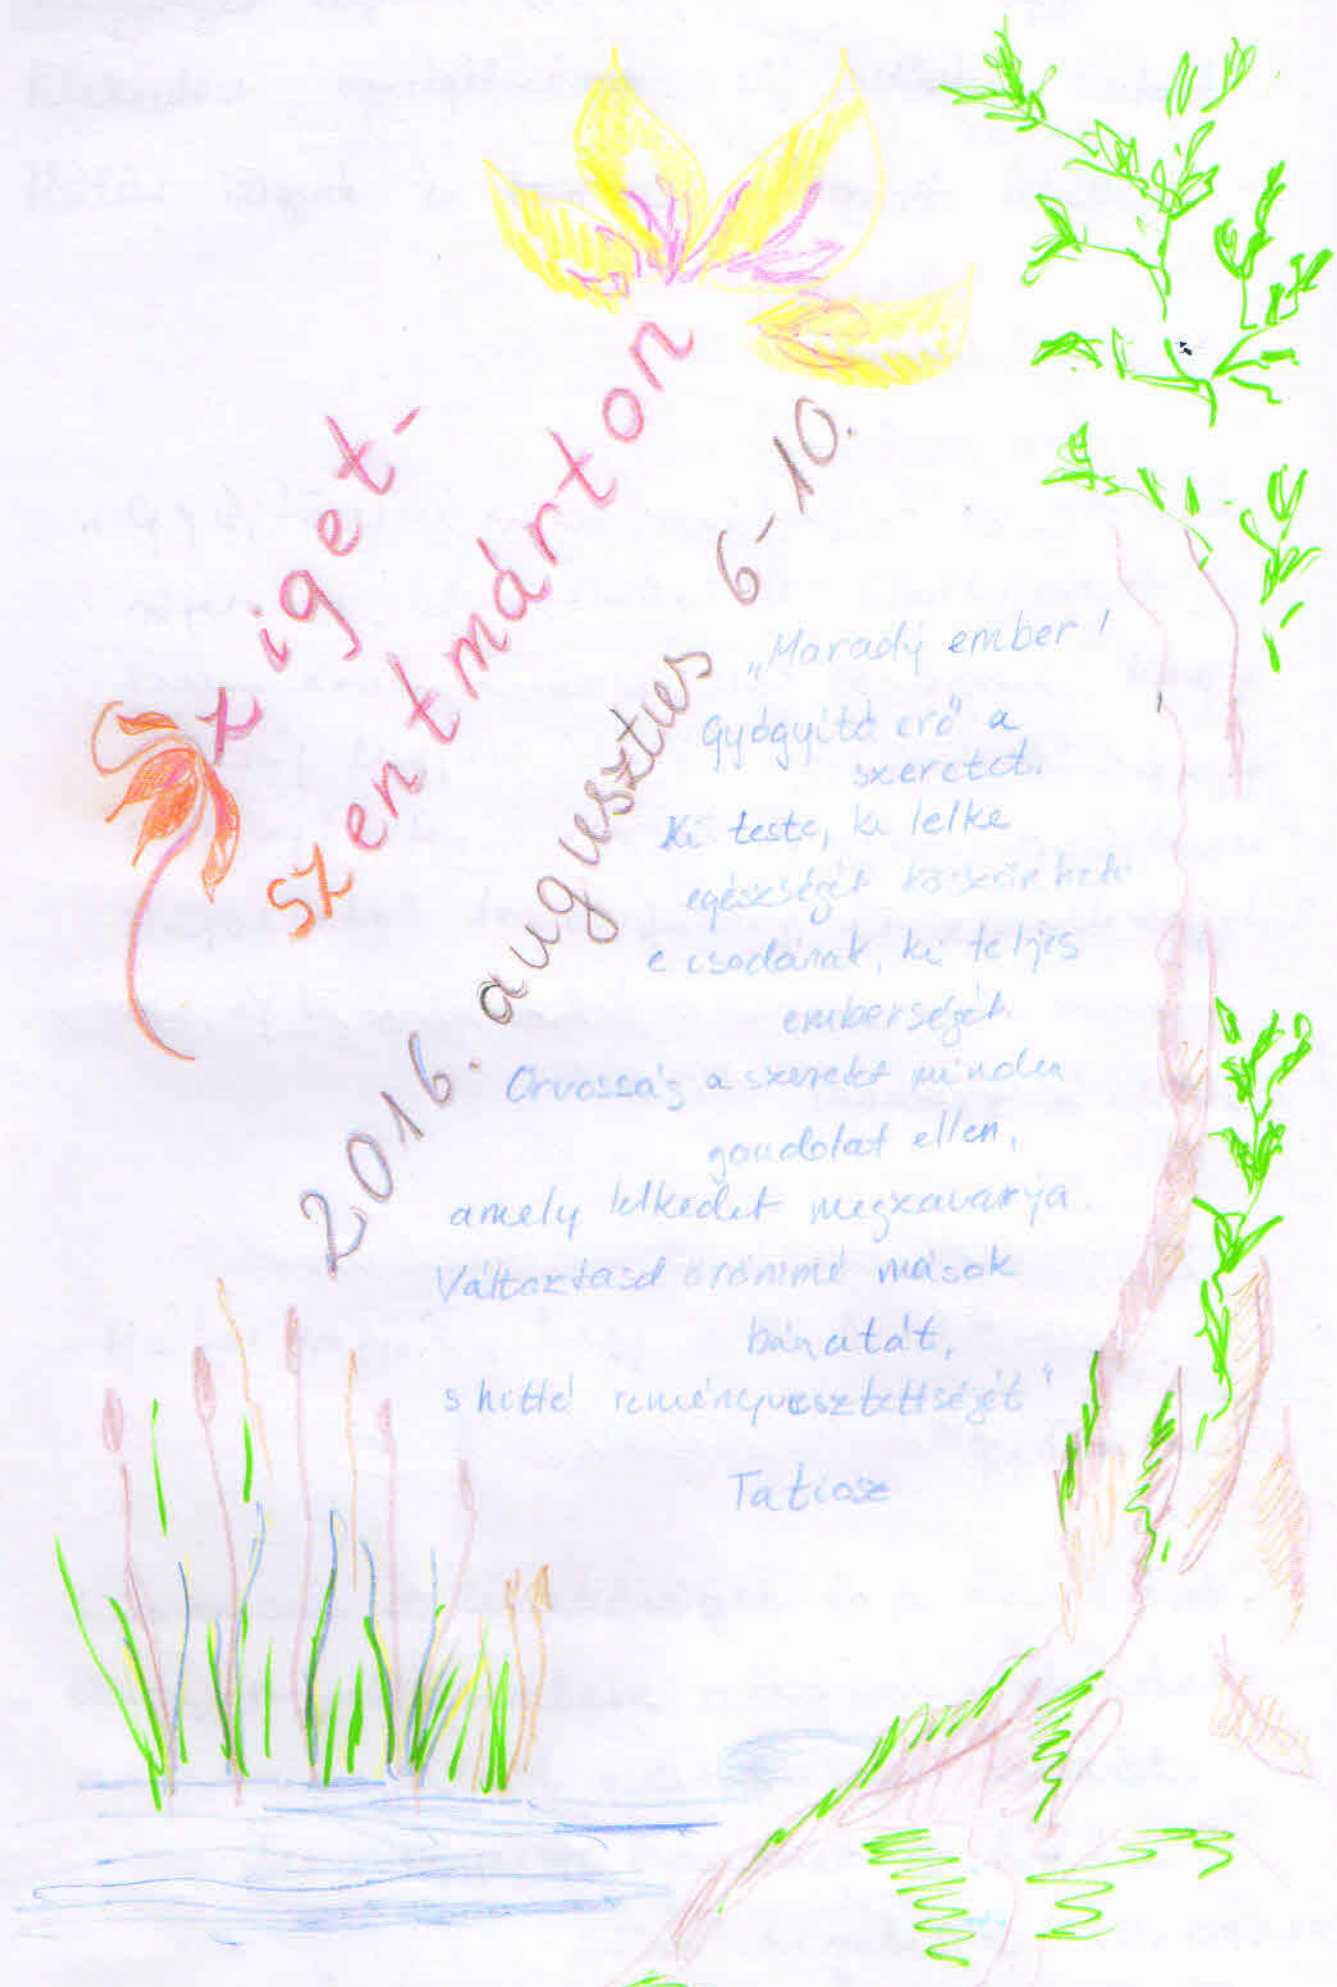 Sziget-
szentmárton
2016. augusztus 6-10.
„Maradj ember!
Gyógyító erő a
szeretet.
Ki teste, ki lelke
egészségét köszönheti
e csodának, ki teljes
emberségét.
Orvosság a szeretet minden
gondolat ellen,
amely lelkedet megzavarja.
Változtasd örömmé mások
bánatát,
s hitté reményvesztettségét"
Tatiosz